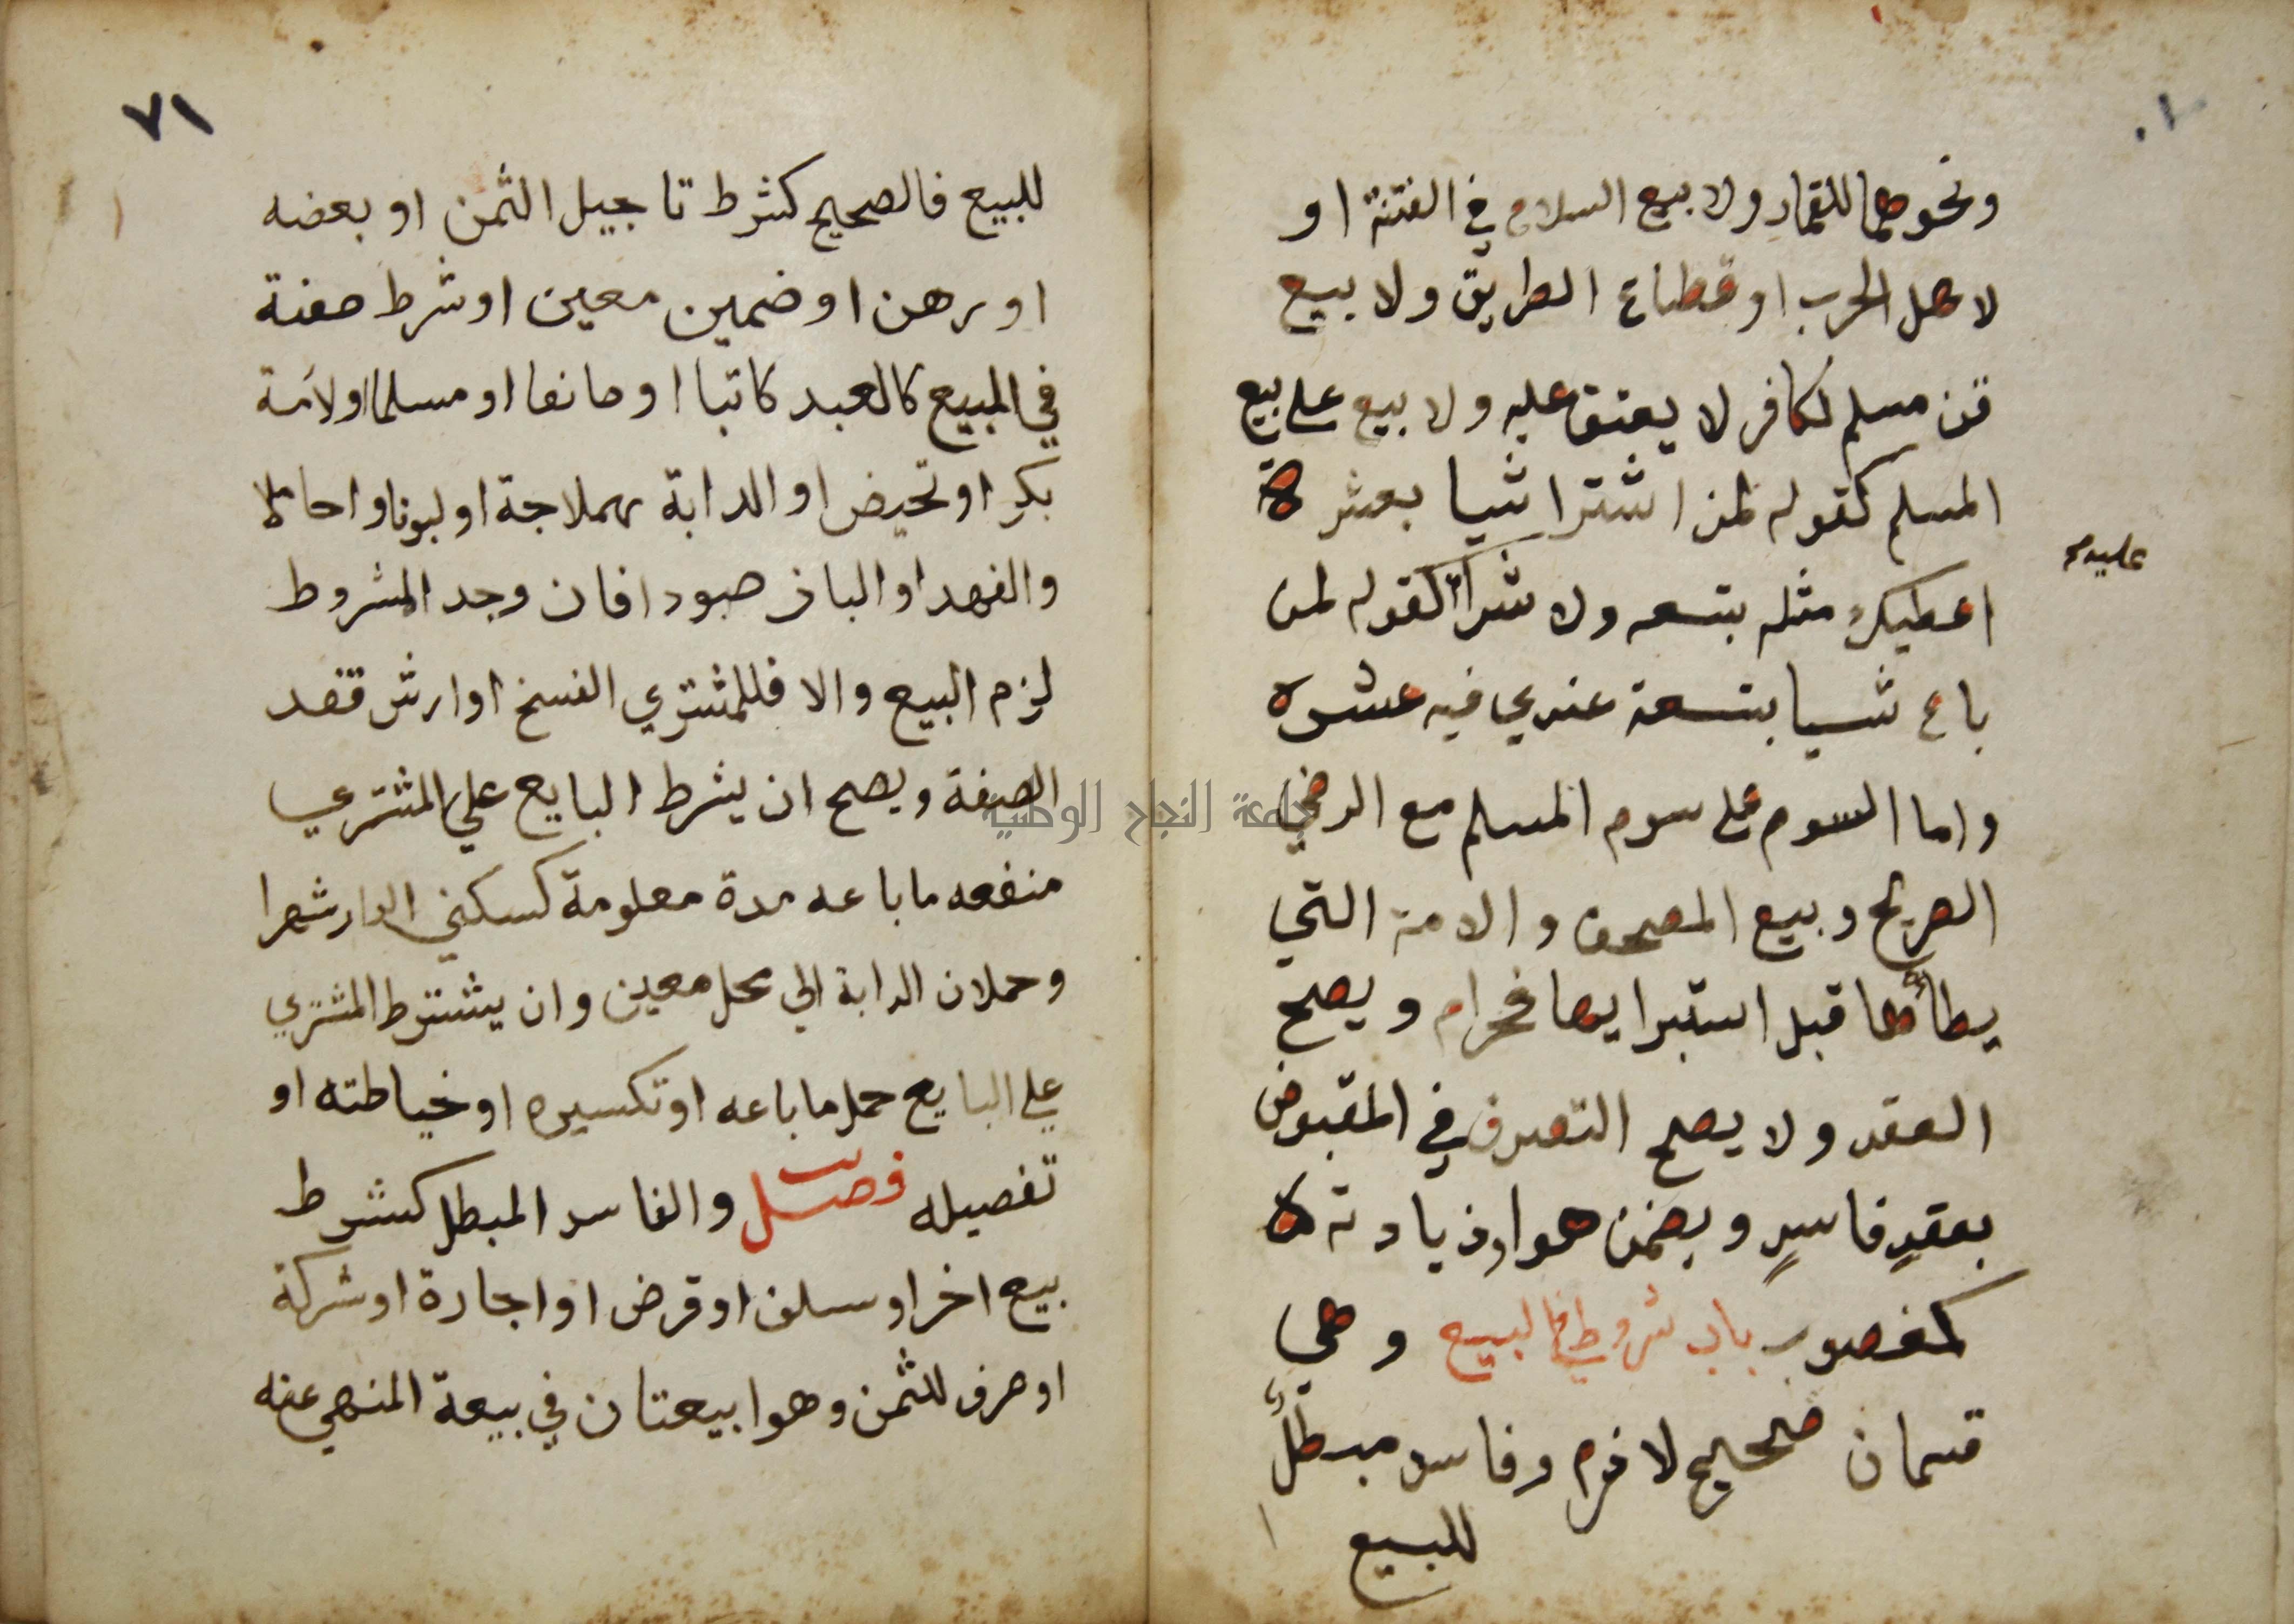 ونحوهما للقمار ولا بيع السلاح في الفتنة او
لاهل الحرب او قطاع الطريق ولا بيع
قن مسلم لكافر لا يعتق عليه ولا بيع علي بيع
المسلم كقوله لمن اشترا شيا بعشرة
اعطيك مثله بتسعه ولا شراء كقوله لمن
باع شيا بتسعة عندي فيه عشره
واما السوم علي سوم المسلم مع الرضي
الصريح وبيع المصحف والامة التي
يطأها قبل استبرايها فحرام ويصح
العقد ولا يصح التصرف في المقبوض
بعقدٍ فاسدٍ ويضمن هو وزيادته
كمغصوب باب شروط في البيع وهي
قسمان صحيح لازم وفاسد مبطلٌ
للبيع
٧١
للبيع فالصحيح كشرط تاجيل الثمن او بعضه
او رهن او ضمين معين او شرط صفة
في المبيع كالعبد كاتبا او صانعا او مسلما او لامة
بكر او تحيض او الدابة هملاجة او لبونا او حاملا
والفهد او الباز صيودا فان وجد المشروط
لزم البيع والا فللمشتري الفسخ او ارش فقد
الصفة ويصح ان يشرط البايع علي المشتري
منفعه ما باعه مدة معلومة كسكني الدار شهرا
وحملان الدابة الي محل معين وان يشترط المشتري
علي البايع حمل ما باعه او تكسيره او خياطته او
تفصيله فصل والفاسد المبطل كشرط
بيع اخر او سلف او قرض او اجارة او شركة
او صرف للثمن وهو ابيعتان في بيعة المنهي عنه
جامعة النجاح الوطنية